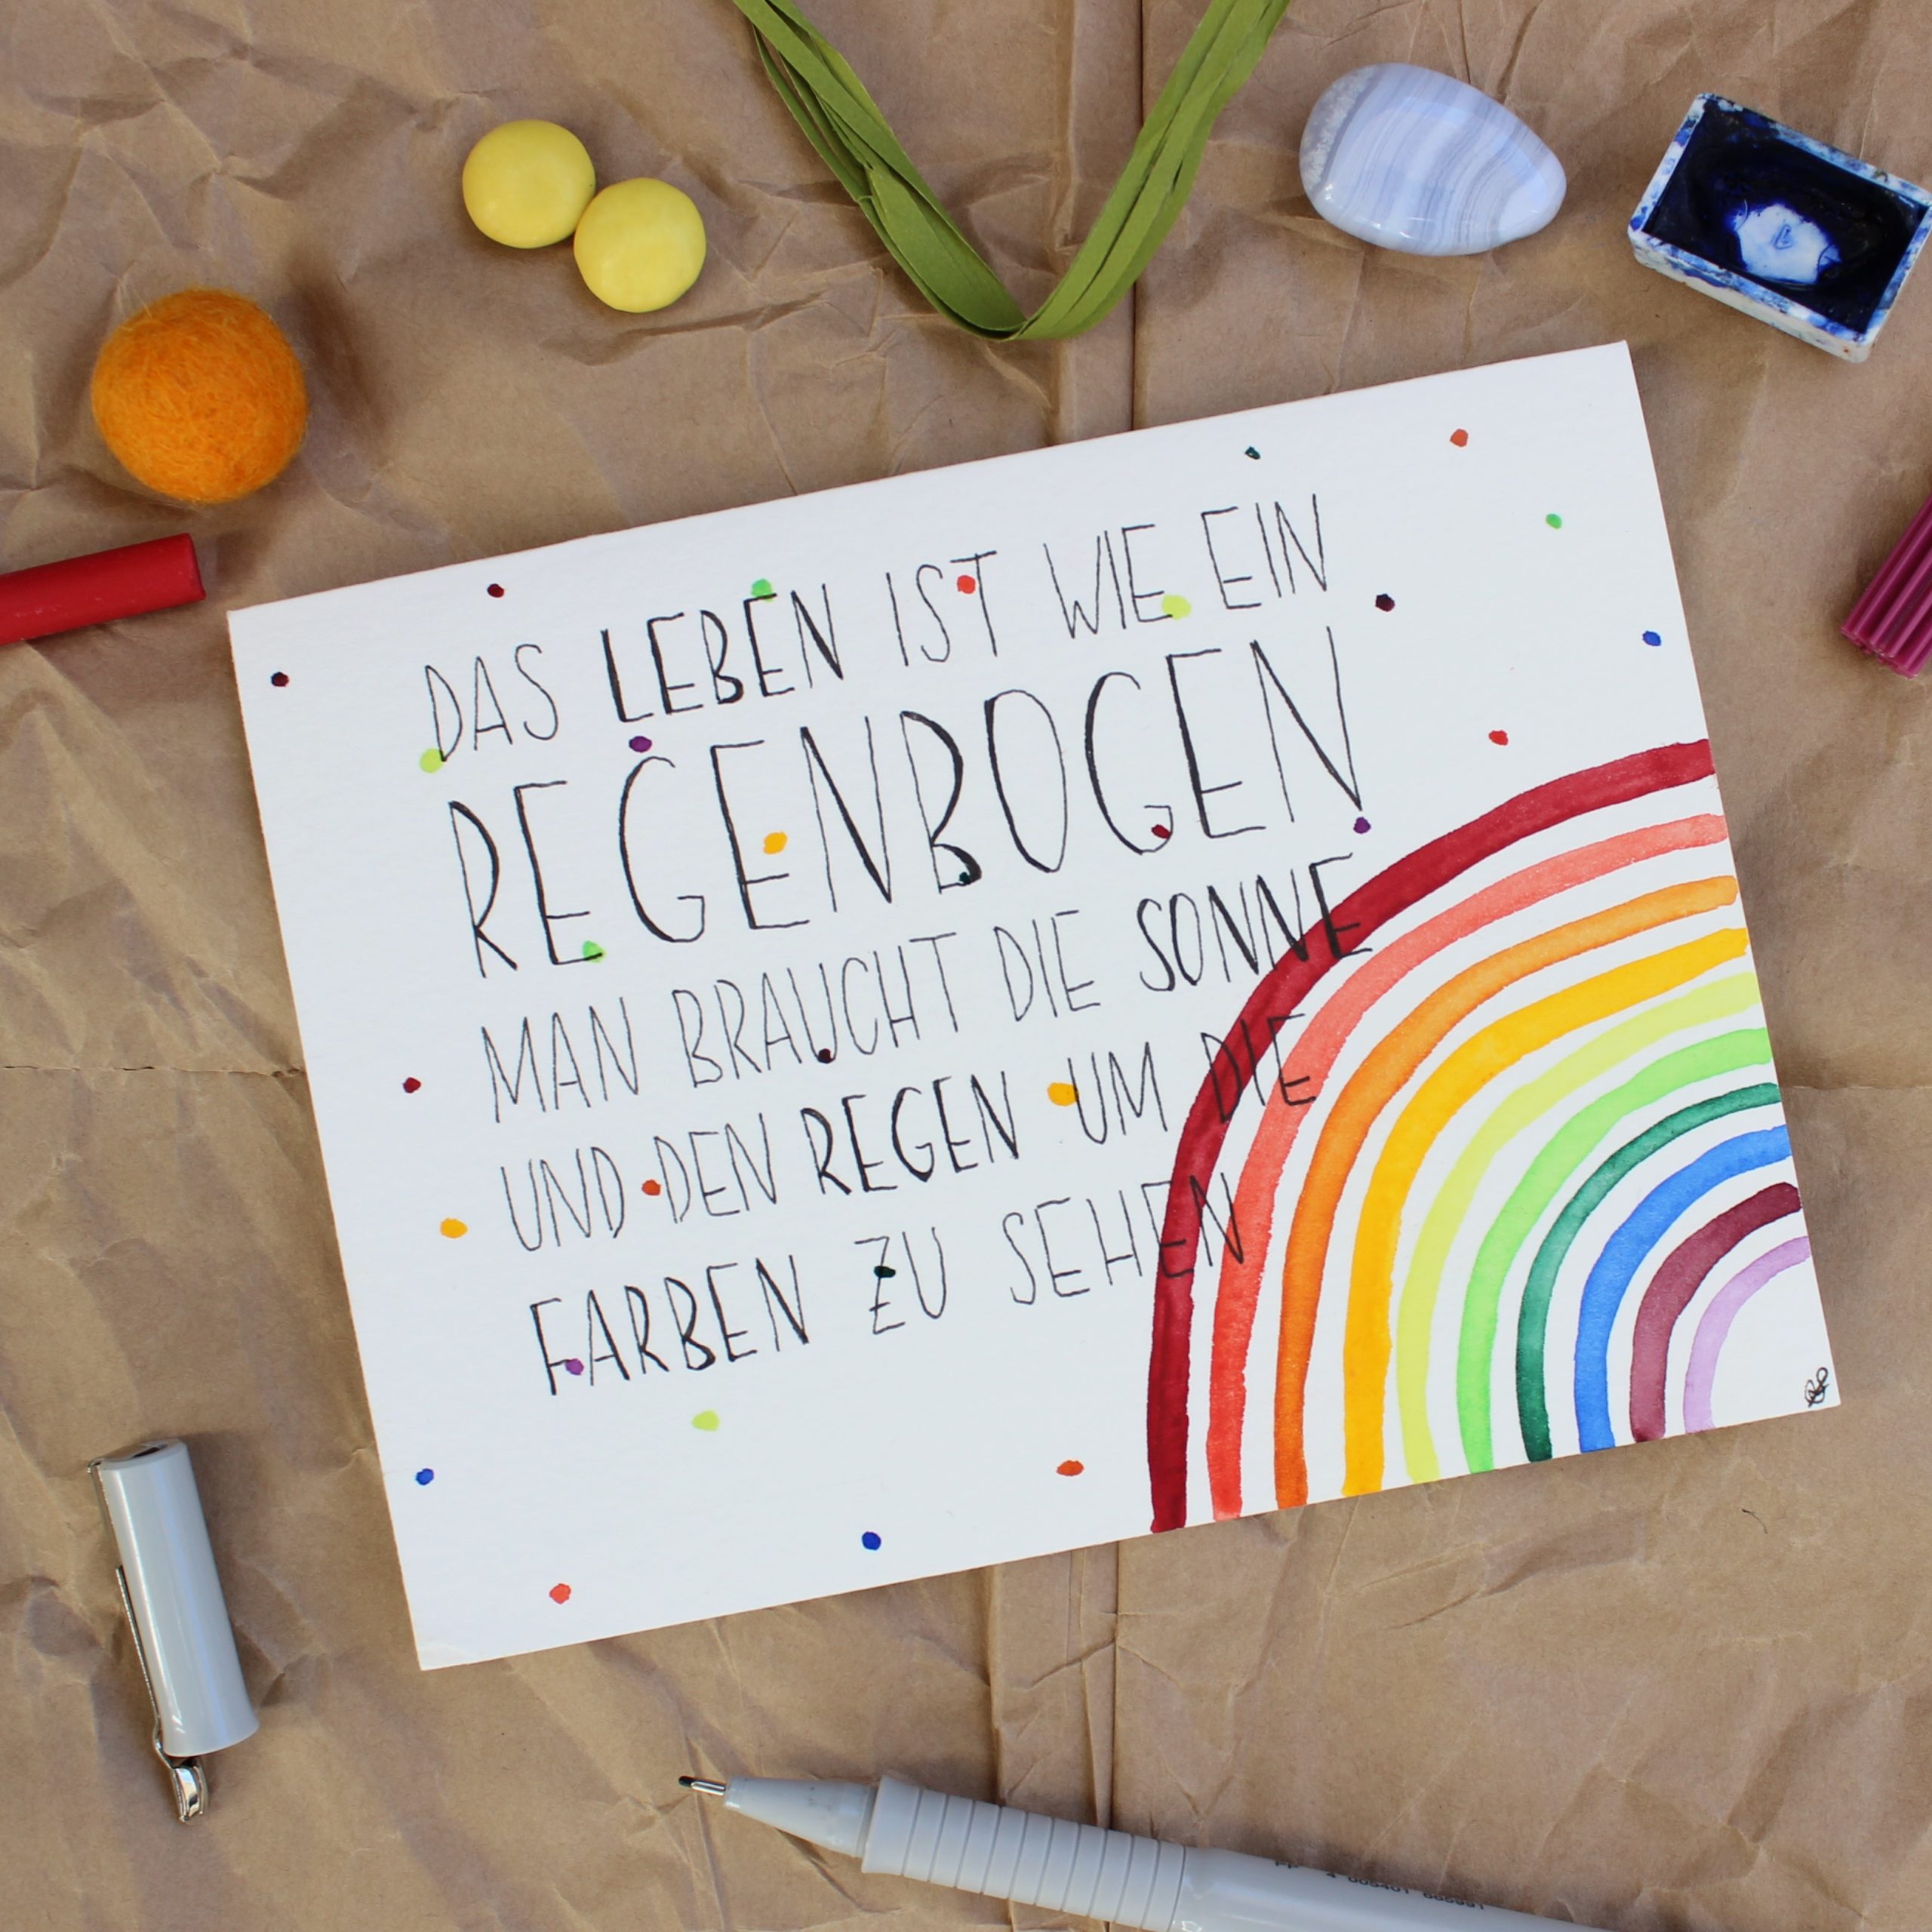 DAS LEBEN IST WIE EIN
REGENBOGEN
MAN BRAUCHT DIE SONNE
UND DEN REGEN UM DIE
FARBEN ZU SEHEN